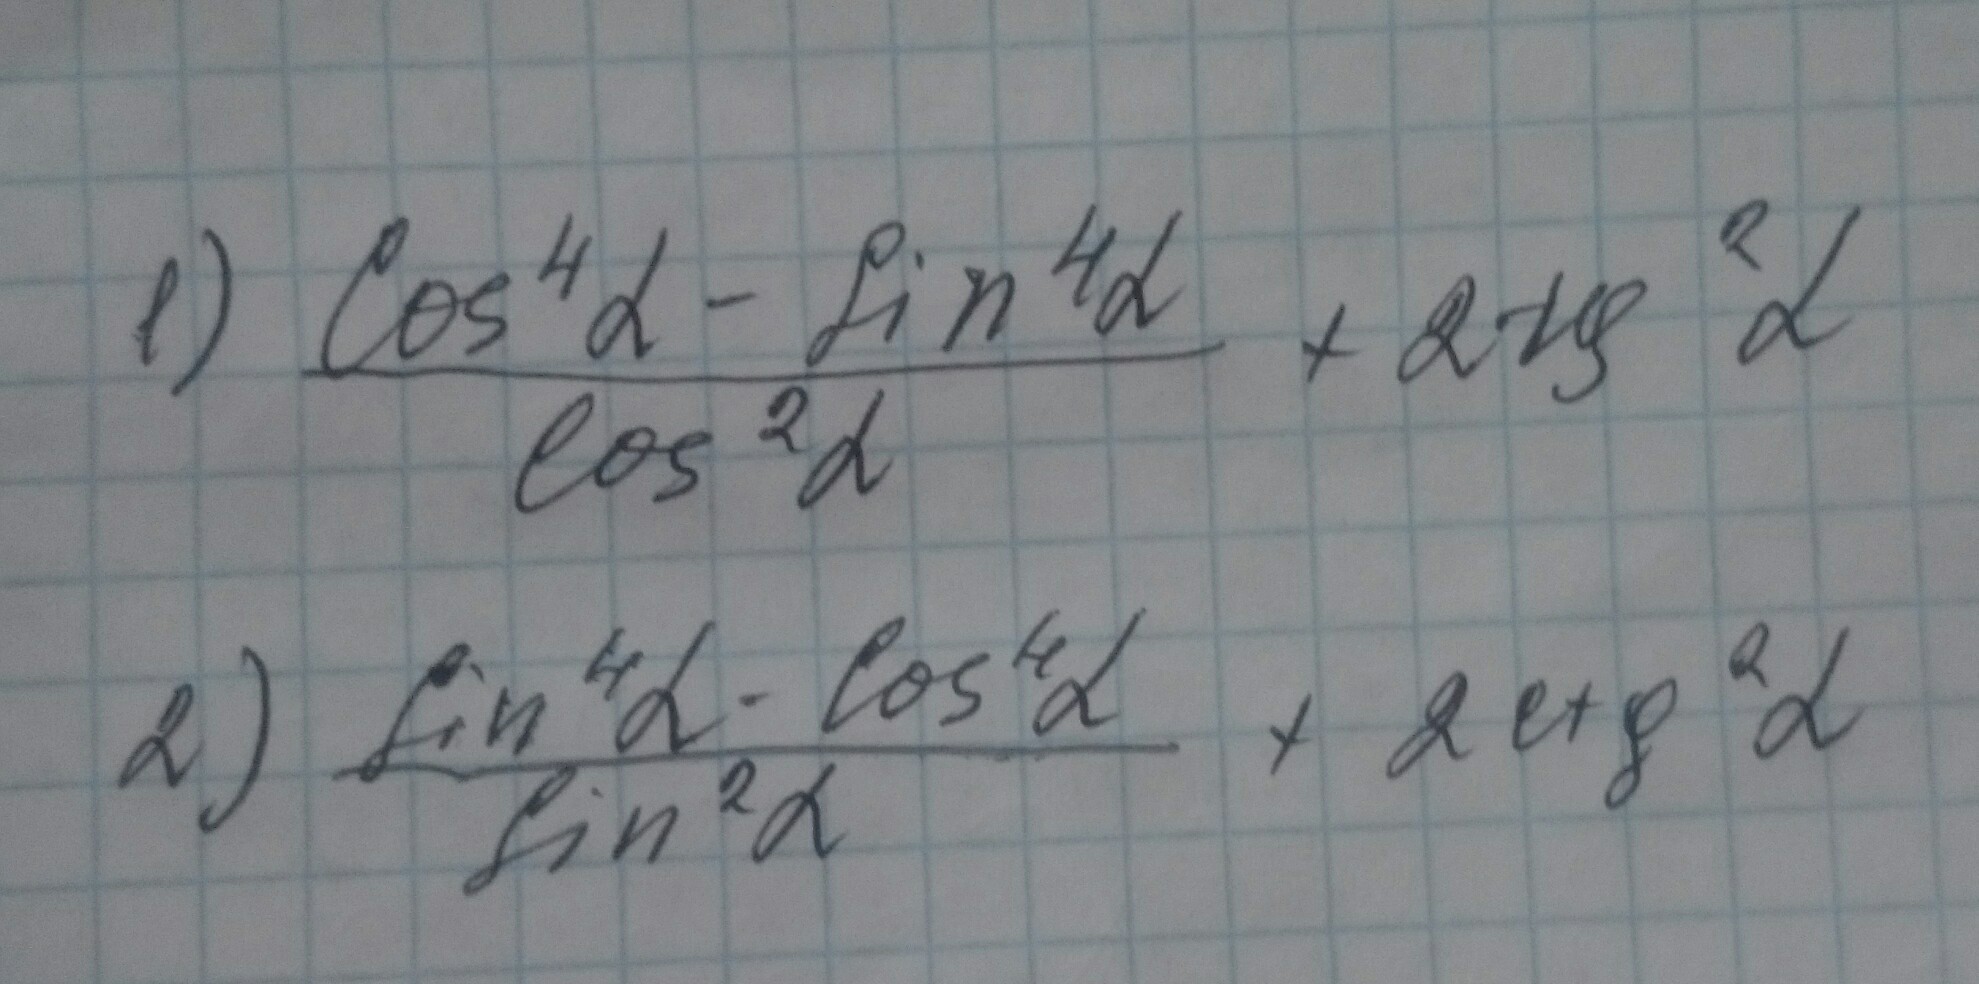 1) (cos⁴α - sin⁴α) / cos²α + 2tg²α
2) (sin⁴α - cos⁴α) / sin²α + 2ctg²α